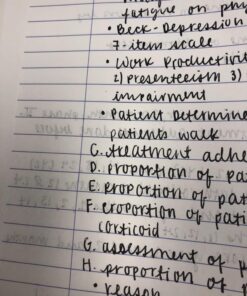 fatigue on phy
• Beck-Depression
7-item scale
• Work Productivit
2) Presenteeism 3)
impairment
• Patient Determine
patients walk
C. treatment adhe
D. proportion of pa
E. proportion of pat
F. proportion of pati
corticoid
G. assessment of p
H. proportion of p
• reason